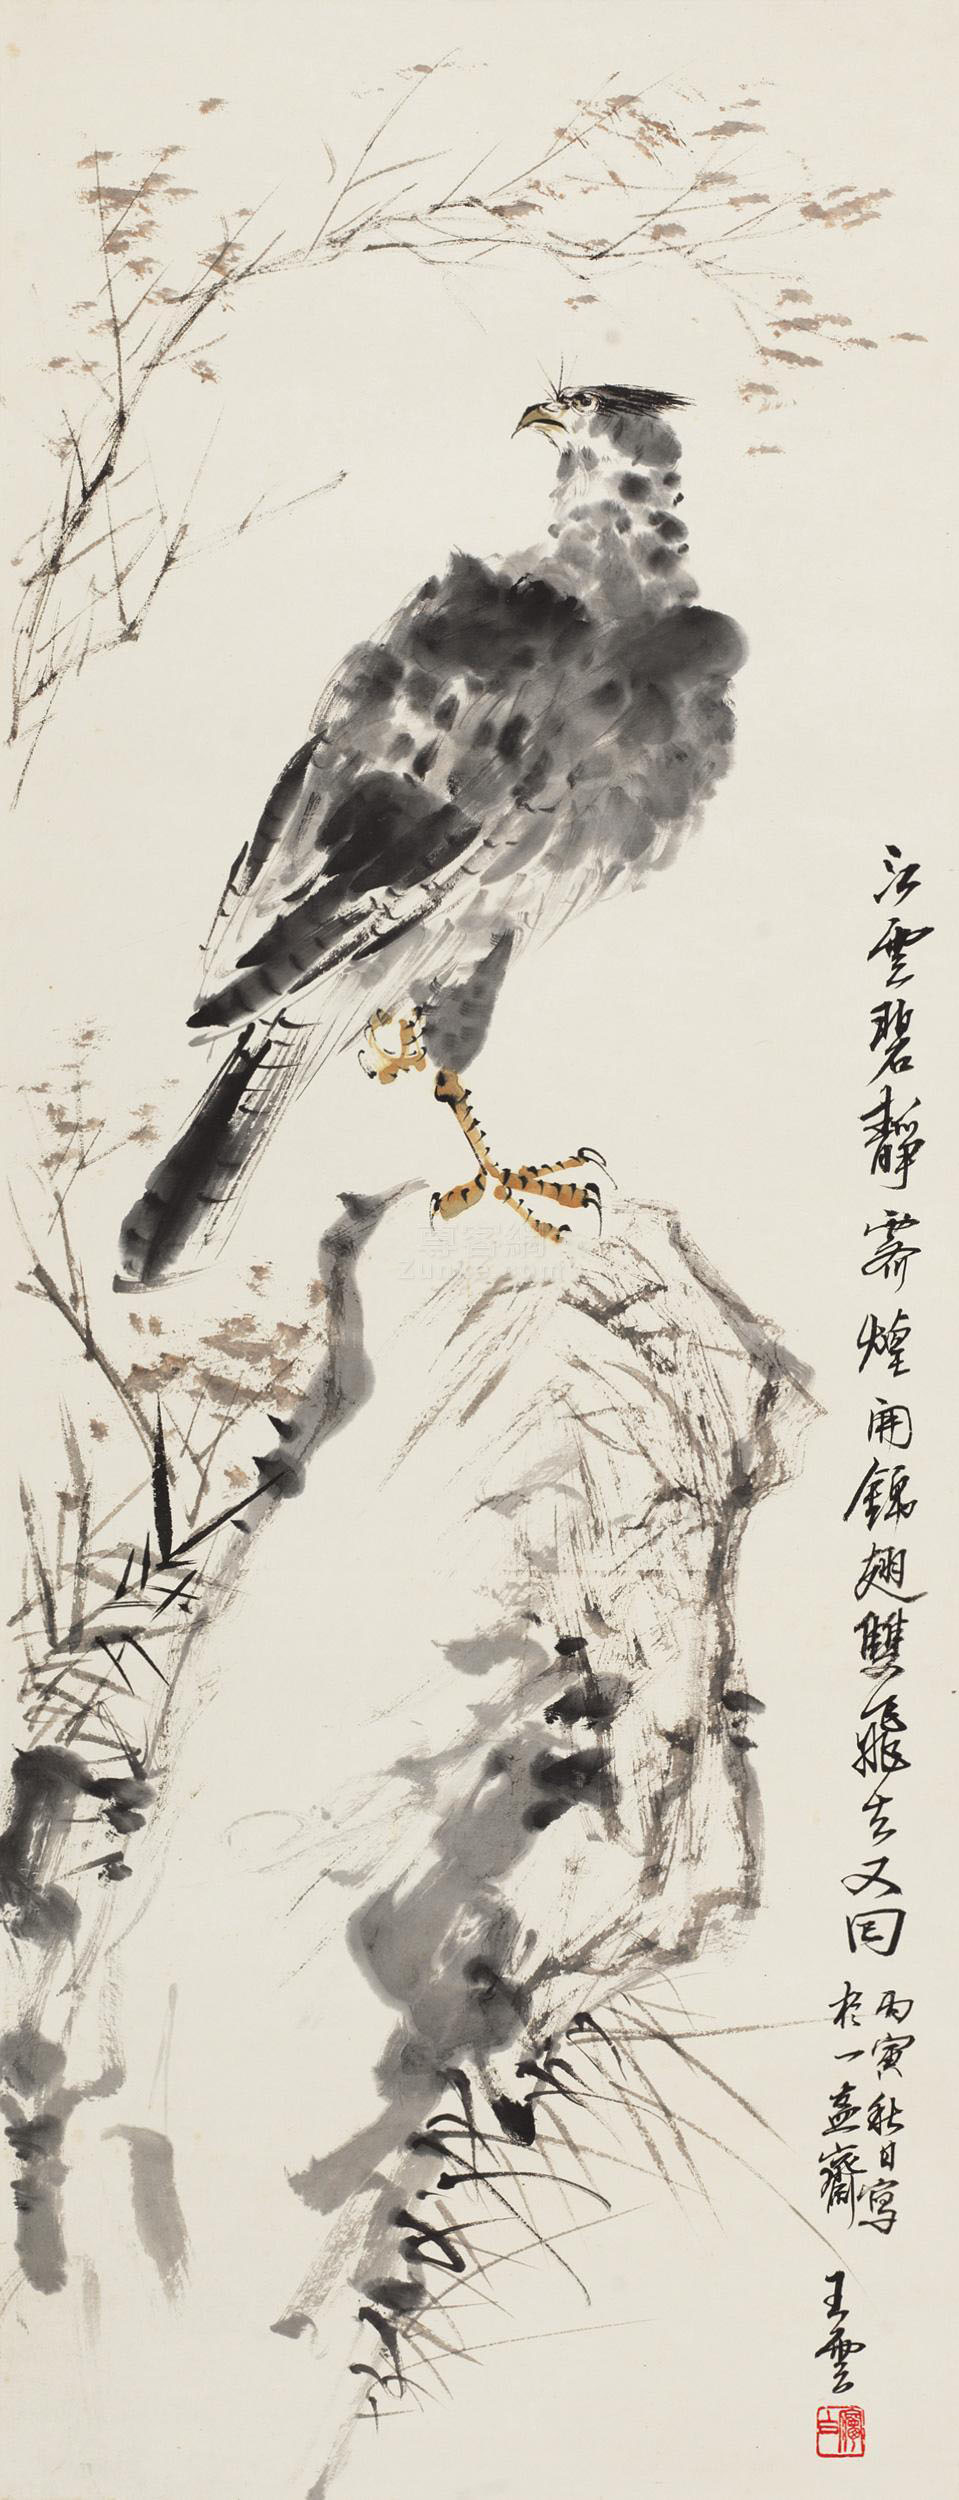 江雲碧靜霽煌開錦翅雙飛去又回
丙寅秋日寫
於一盦齋
王雲
尊客網
Zunke.com